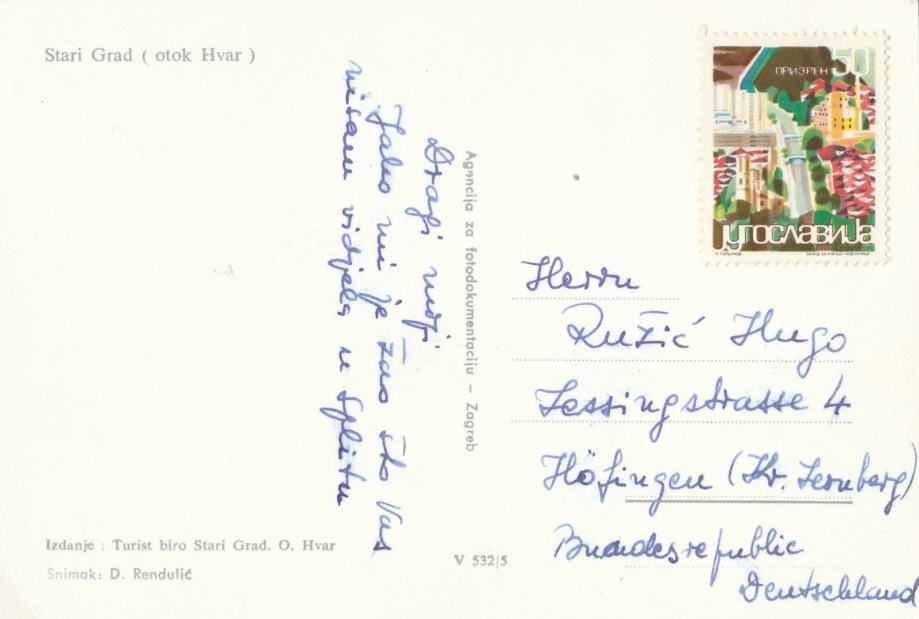 Stari Grad ( otok Hvar )
Dragi moji
Jako mi je žao što Vas
nisam vidjela u Splitu
Agencija za fotodokumentaciju – Zagreb
Izdanje : Turist biro Stari Grad. O. Hvar
Snimak: D. Rendulić
V 532/5
ПРИЗРЕН 50
југославија
Herrn
Ružić Hugo
Lessingstrasse 4
Höfingen (Kr. Leonberg)
Bundesrepublic
Deutschland